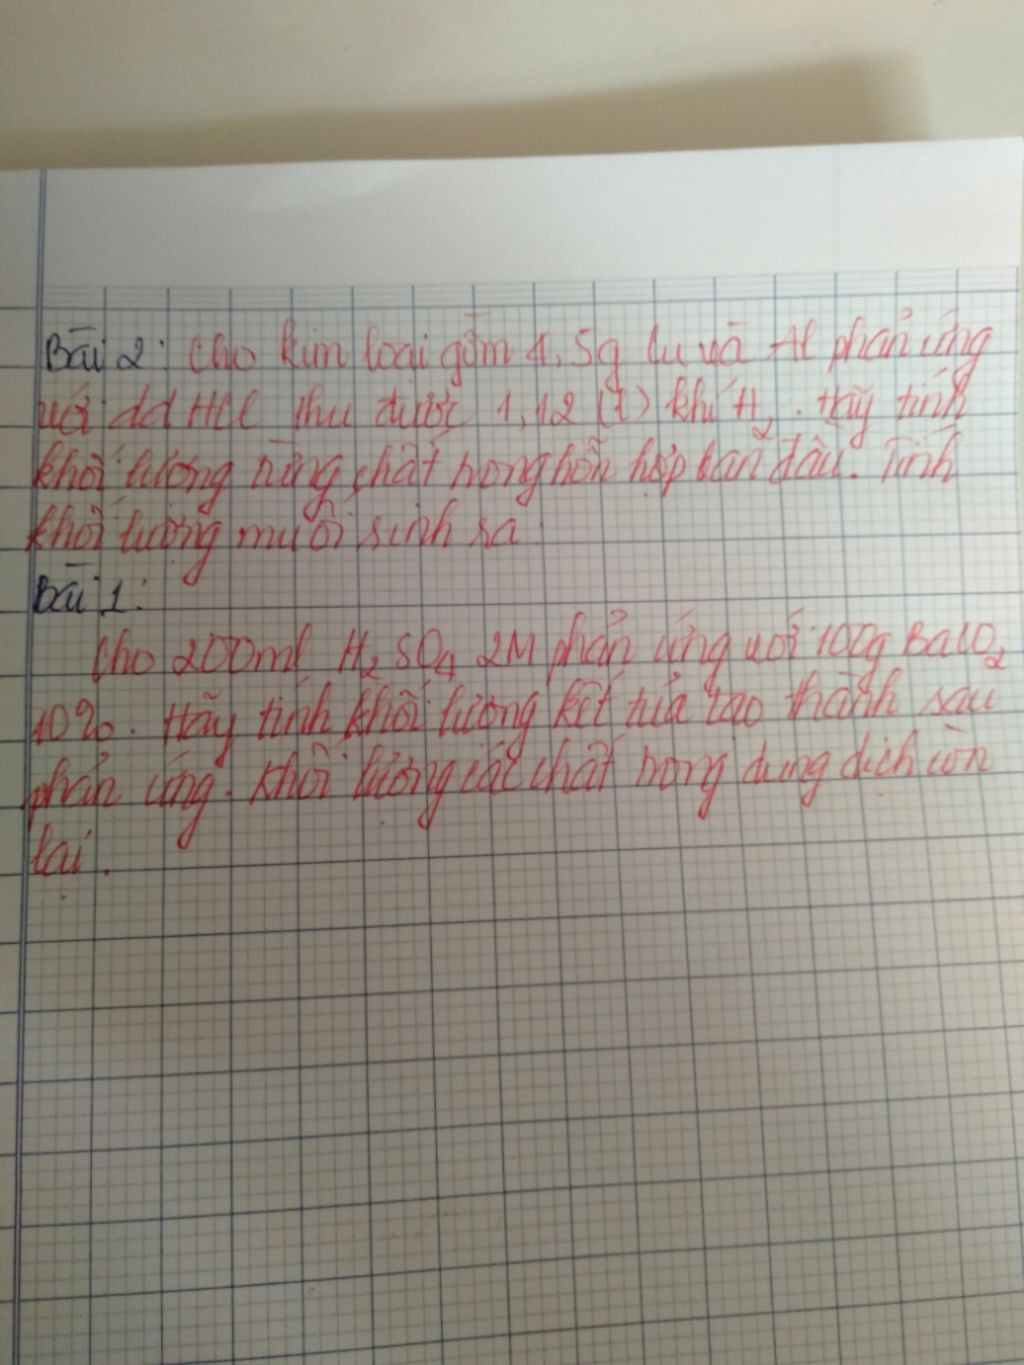 Bài 2: Cho kim loại gồm 1,5g Cu và Al phản ứng
với dd HCl thu được 1,12 (l) khí H₂. Hãy tính
khối lượng từng chất trong hỗn hợp ban đầu. Tính
khối lượng muối sinh ra.
Bài 1:
Cho 200ml H₂SO₄ 2M phản ứng với 100g BaCO₂
10%. Hãy tính khối lượng kết tủa tạo thành sau
phản ứng. Khối lượng các chất trong dung dịch còn
lại.